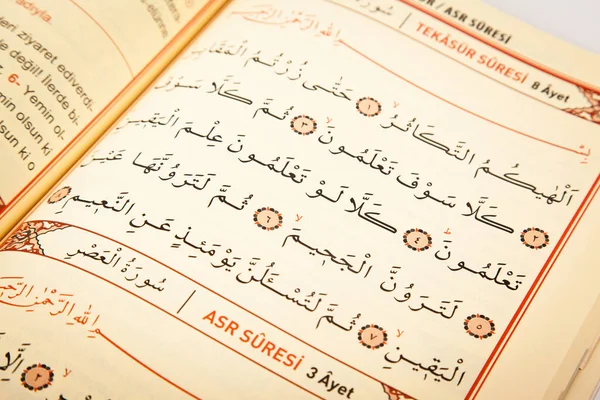 adıyla.
eri ziyaret ediverdi
e değil! İlerde bi
6- Yemin ol
min olsun ki
olsun ki o
/ ASR SÛRESİ
سُورَةُ
TEKÂSÜR SÛRESİ 8 Âyet
بِسْمِ اللهِ الرَّحْمٰنِ الرَّحِيمِ
اَلْهٰيكُمُ التَّكَاثُرُ ١ حَتّٰى زُرْتُمُ الْمَقَابِرَ
٢ كَلَّا سَوْفَ تَعْلَمُونَ ٣ ثُمَّ كَلَّا سَوْفَ
تَعْلَمُونَ ٤ كَلَّا لَوْ تَعْلَمُونَ عِلْمَ الْيَقِينِ
٥ لَتَرَوُنَّ الْجَحِيمَ ٦ ثُمَّ لَتَرَوُنَّهَا عَيْنَ
الْيَقِينِ ٧ ثُمَّ لَتُسْـَٔلُنَّ يَوْمَئِذٍ عَنِ النَّعِيمِ ٨
سُورَةُ الْعَصْرِ
ASR SÛRESİ 3 Âyet
مِ اللهِ الرَّحْمٰنِ الرَّحِيمِ
اِلَّا ٢